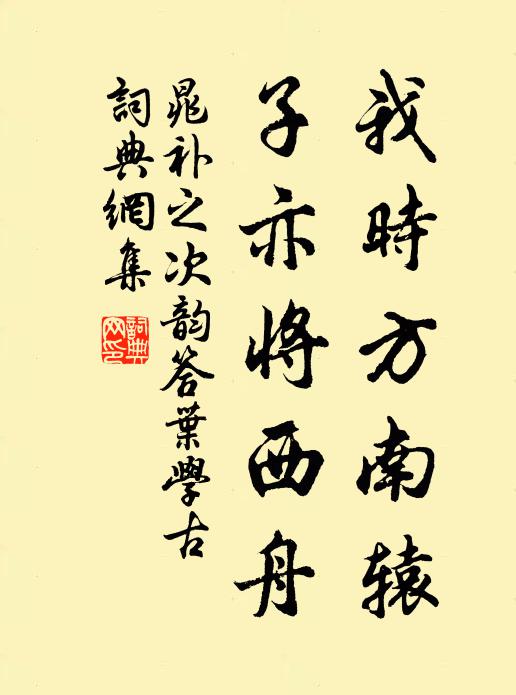 我時方南辕
子亦将西舟
晁补之次韵答葉學古
詞典網集
詞典網印